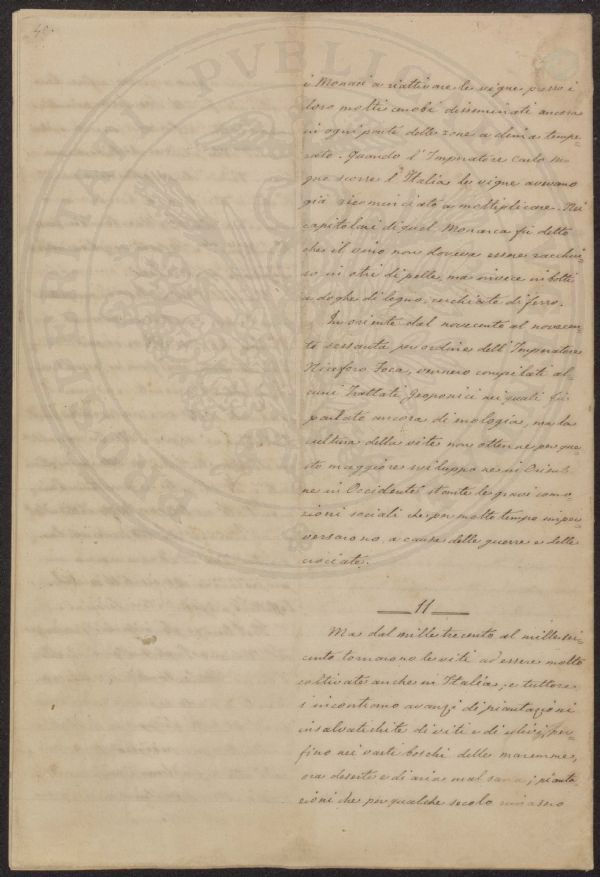 40.
i Monaci a riattivare le vigne presso i
loro molti cenobi disseminati ancora
in ogni parte delle zone a clima tempe=
rato. Quando l'Imperatore Carlo Ma=
gno scorse l'Italia le vigne avevano
già ricominciato a moltiplicare. Nei
capitolari di quel Monarca fu detto
che il vino non doveva essere racchiu=
so in otri di pelle, ma invece in botti
a doghe di legno, cerchiate di ferro.
In oriente dal novecento al novecen=
to sessanta, per ordine dell'Imperatore
Niceforo Foca, vennero compilati al=
cuni Trattati Geoponici nei quali fu
parlato ancora di enologia, ma la
cultura della vite non ottenne per que=
sto maggiore sviluppo ne in Oriente
ne in Occidente stante le gravi como=
zioni sociali che per molto tempo imper=
versarono, a causa delle guerre e delle
crociate.
11
Ma dal mille trecento al mille sei=
cento tornarono le viti ad essere molto
coltivate anche in Italia, e tuttora
s'incontrano avanzi di piantagioni
insalvatichite di viti e di ulivi, per=
fino nei vasti boschi delle maremme,
ora deserte e di aria mal sana; pianta
gioni che per qualche secolo rimasero
PVBLIC